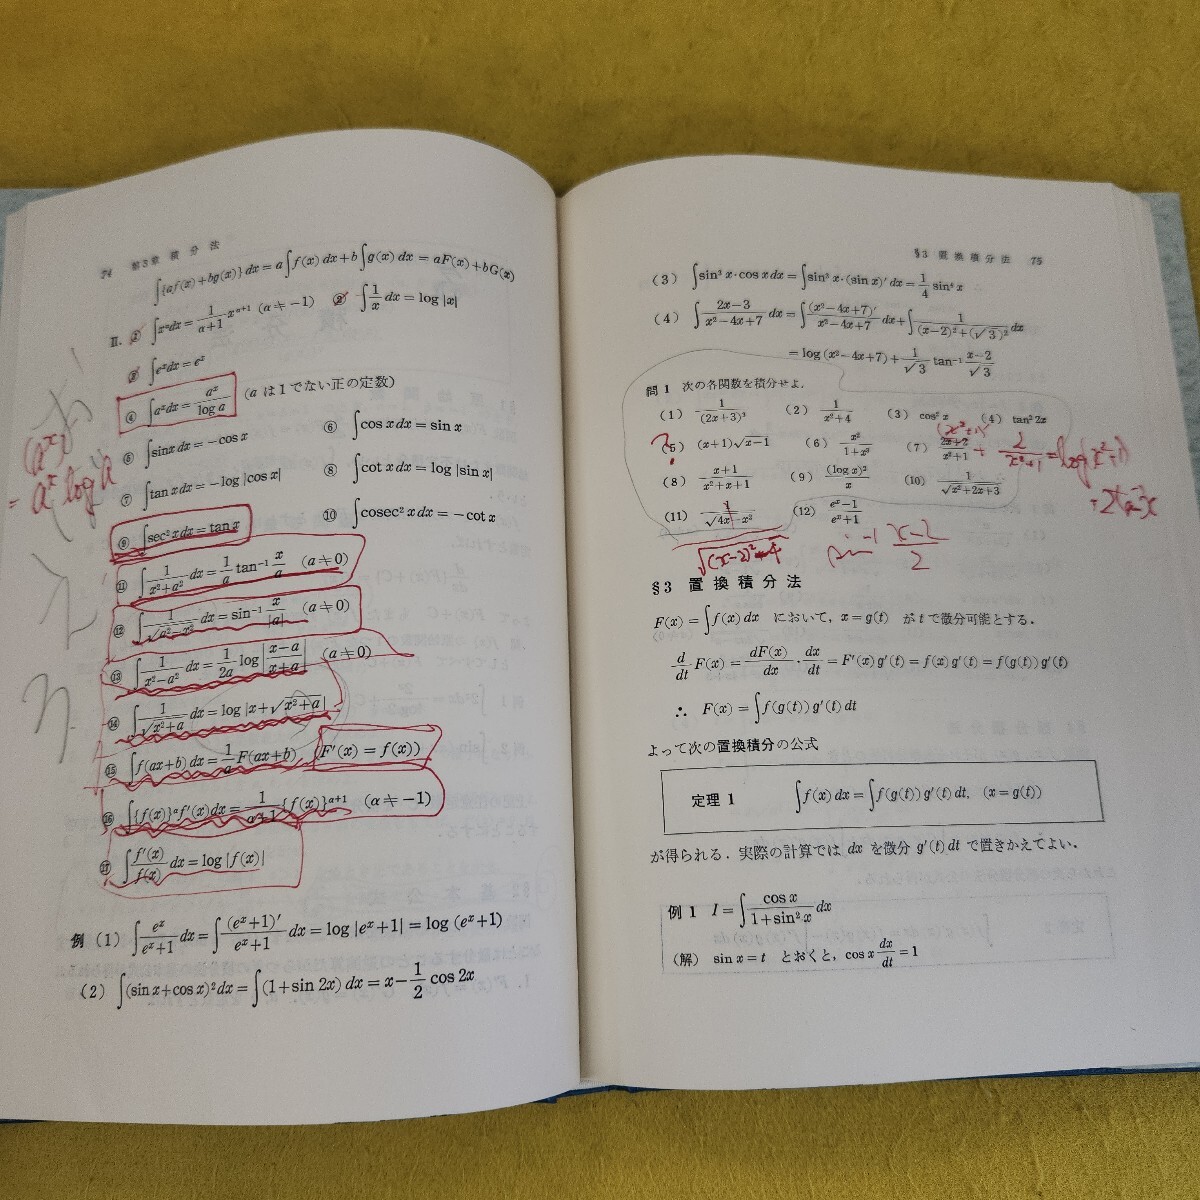 74 第3章 積分法
∫{af(x)+bg(x)}dx=a∫f(x)dx+b∫g(x)dx=aF(x)+bG(x)
II. ① ∫x^α dx=1/(α+1) x^(α+1) (α≠-1) ② ∫1/x dx=log|x|
③ ∫e^x dx=e^x
④ ∫a^x dx=a^x/log a (a は1でない正の定数)
⑤ ∫sin x dx=-cos x ⑥ ∫cos x dx=sin x
⑦ ∫tan x dx=-log|cos x| ⑧ ∫cot x dx=log|sin x|
⑨ ∫sec² x dx=tan x ⑩ ∫cosec² x dx=-cot x
⑪ ∫1/(x²+a²) dx=1/a tan⁻¹ x/a (a≠0)
⑫ ∫1/√(a²-x²) dx=sin⁻¹ x/|a| (a≠0)
⑬ ∫1/(x²-a²) dx=1/2a log|(x-a)/(x+a)| (a≠0)
⑭ ∫1/√(x²+a) dx=log|x+√(x²+a)|
⑮ ∫f(ax+b)dx=1/a F(ax+b) (F'(x)=f(x))
⑯ ∫{f(x)}^α f'(x)dx=1/(α+1) {f(x)}^(α+1) (α≠-1)
⑰ ∫f'(x)/f(x) dx=log|f(x)|
(a^x)'
=a^x log a
例 (1) ∫e^x/(e^x+1) dx=∫(e^x+1)'/(e^x+1) dx=log|e^x+1|=log(e^x+1)
(2) ∫(sin x+cos x)² dx=∫(1+sin 2x)dx=x-1/2 cos 2x
§3 置換積分法 75
(3) ∫sin³ x·cos x dx=∫sin³ x·(sin x)'dx=1/4 sin⁴ x
(4) ∫(2x-3)/(x²-4x+7) dx=∫(x²-4x+7)'/(x²-4x+7) dx+∫1/((x-2)²+(√3)²) dx
=log(x²-4x+7)+1/√3 tan⁻¹ (x-2)/√3
問1 次の各関数を積分せよ.
(1) 1/(2x+3)³ (2) 1/(x²+4) (3) cos² x (4) tan² 2x
(5) (x+1)√(x-1) (6) x²/(1+x²) (7) (2x+2)/(x²+1)
(x²+1)' + 2/(x²+1) =log(x²+1)
(8) (x+1)/(x²+x+1) (9) (log x)²/x (10) 1/√(x²+2x+3)
(11) 1/√(4x-x²) (12) (e^x-1)/(e^x+1)
√((x-2)²-4) sin⁻¹ (x-2)/2
§3 置換積分法
F(x)=∫f(x)dx において, x=g(t) が t で微分可能とする.
d/dt F(x)=dF(x)/dx · dx/dt=F'(x)g'(t)=f(x)g'(t)=f(g(t))g'(t)
∴ F(x)=∫f(g(t))g'(t)dt
よって次の置換積分の公式
定理1 ∫f(x)dx=∫f(g(t))g'(t)dt, (x=g(t))
が得られる. 実際の計算では dx を微分 g'(t)dt で置きかえてよい.
例1 I=∫cos x/(1+sin² x) dx
(解) sin x=t とおくと, cos x dx/dt=1